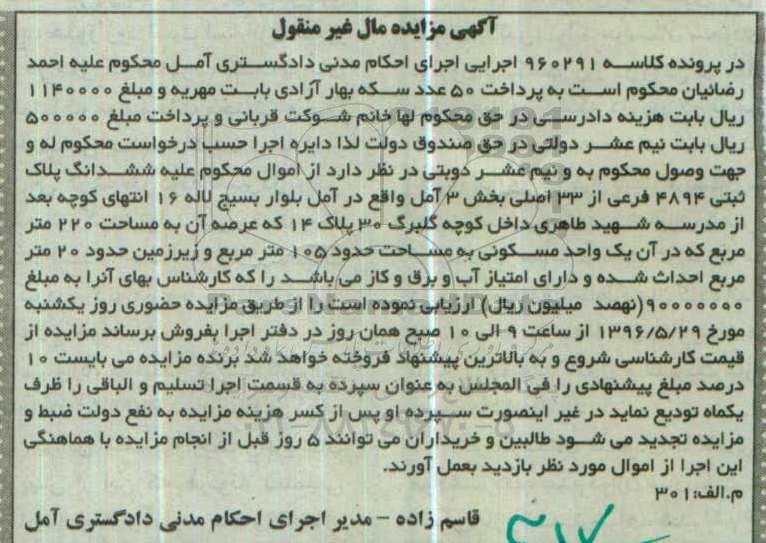 آگهی مزایده مال غیر منقول
در پرونده کلاسه ۹۶۰۲۹۱ اجرایی اجرای احکام مدنی دادگستری آمل محکوم علیه احمد
رضائیان محکوم است به پرداخت ۵۰ عدد سکه بهار آزادی بابت مهریه و مبلغ ۱۱۴۰۰۰۰
ریال بابت هزینه دادرسی در حق محکوم لها خانم شوکت قربانی و پرداخت مبلغ ۵۰۰۰۰۰
ریال بابت نیم عشر دولتی در حق صندوق دولت لذا دایره اجرا حسب درخواست محکوم له و
جهت وصول محکوم به و نیم عشر دویتی در نظر دارد از اموال محکوم علیه ششدانگ پلاک
ثبتی ۴۸۹۴ فرعی از ۳۳ اصلی بخش ۳ آمل واقع در آمل بلوار بسیج لاله ۱۶ انتهای کوچه بعد
از مدرسه شهید طاهری داخل کوچه گلبرگ ۳۰ پلاک ۱۴ که عرصه آن به مساحت ۲۲۰ متر
مربع که در آن یک واحد مسکونی به مساحت حدود ۱۰۵ متر مربع و زیرزمین حدود ۲۰ متر
مربع احداث شده و دارای امتیاز آب و برق و گاز می باشد را که کارشناس بهای آنرا به مبلغ
۹۰۰۰۰۰۰۰ (نهصد میلیون ریال) ارزیابی نموده است را از طریق مزایده حضوری روز یکشنبه
مورخ ۱۳۹۶/۵/۲۹ از ساعت ۹ الی ۱۰ صبح همان روز در دفتر اجرا بفروش برساند مزایده از
قیمت کارشناسی شروع و به بالاترین پیشنهاد فروخته خواهد شد برنده مزایده می بایست ۱۰
درصد مبلغ پیشنهادی را فی المجلس به عنوان سپرده به قسمت اجرا تسلیم و الباقی را ظرف
یکماه تودیع نماید در غیر اینصورت سپرده او پس از کسر هزینه مزایده به نفع دولت ضبط و
مزایده تجدید می شود طالبین و خریداران می توانند ۵ روز قبل از انجام مزایده با هماهنگی
این اجرا از اموال مورد نظر بازدید بعمل آورند.
م.الف:۳۰۱
قاسم زاده - مدیر اجرای احکام مدنی دادگستری آمل